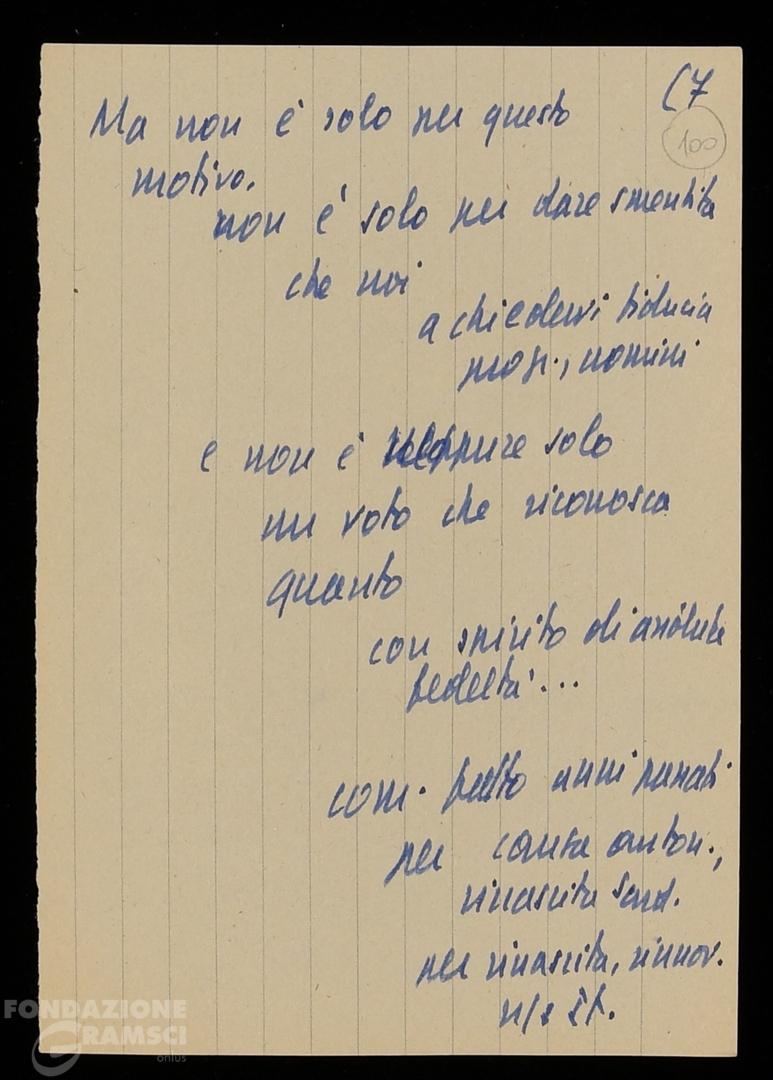 (7
100
Ma non è solo per questo
motivo.
non è solo per dare smentita
che noi
a chiedervi fiducia
progr., uomini
e non è neppure solo
un voto che riconosca
quanto
con spirito di assoluta
fedeltà...
com. fatto anni passati
per causa auton.,
rinascita sard.
per rinascita, rinnov.
FONDAZIONE
GRAMSCI
onlus